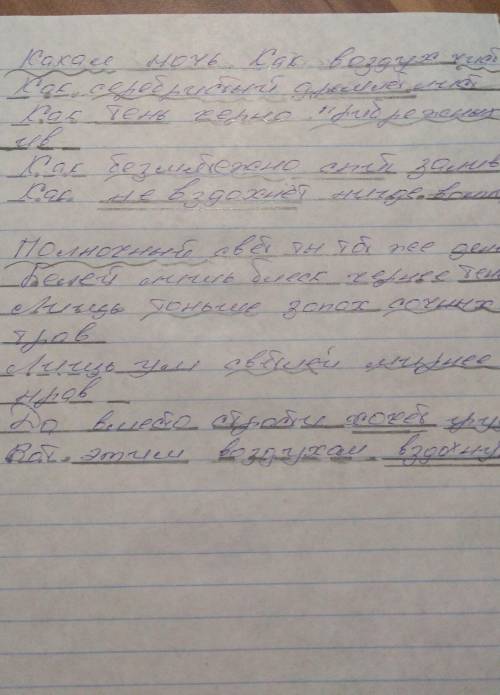 Какам ночь Как воздух чист
Как серебристый дремлет лист
Как тень черно прибрежных
ив
Как безмятежно спит залив
Как не вздохнёт нигде волн
Полночный свет ты тот же ден
Белей лишь блеск чернее тен
Лишь тоньше запах сочных
трав
Лишь ум светлей мирнее
нрав
Да вместо страсти хочет гру
Вот этим воздухом вздохну